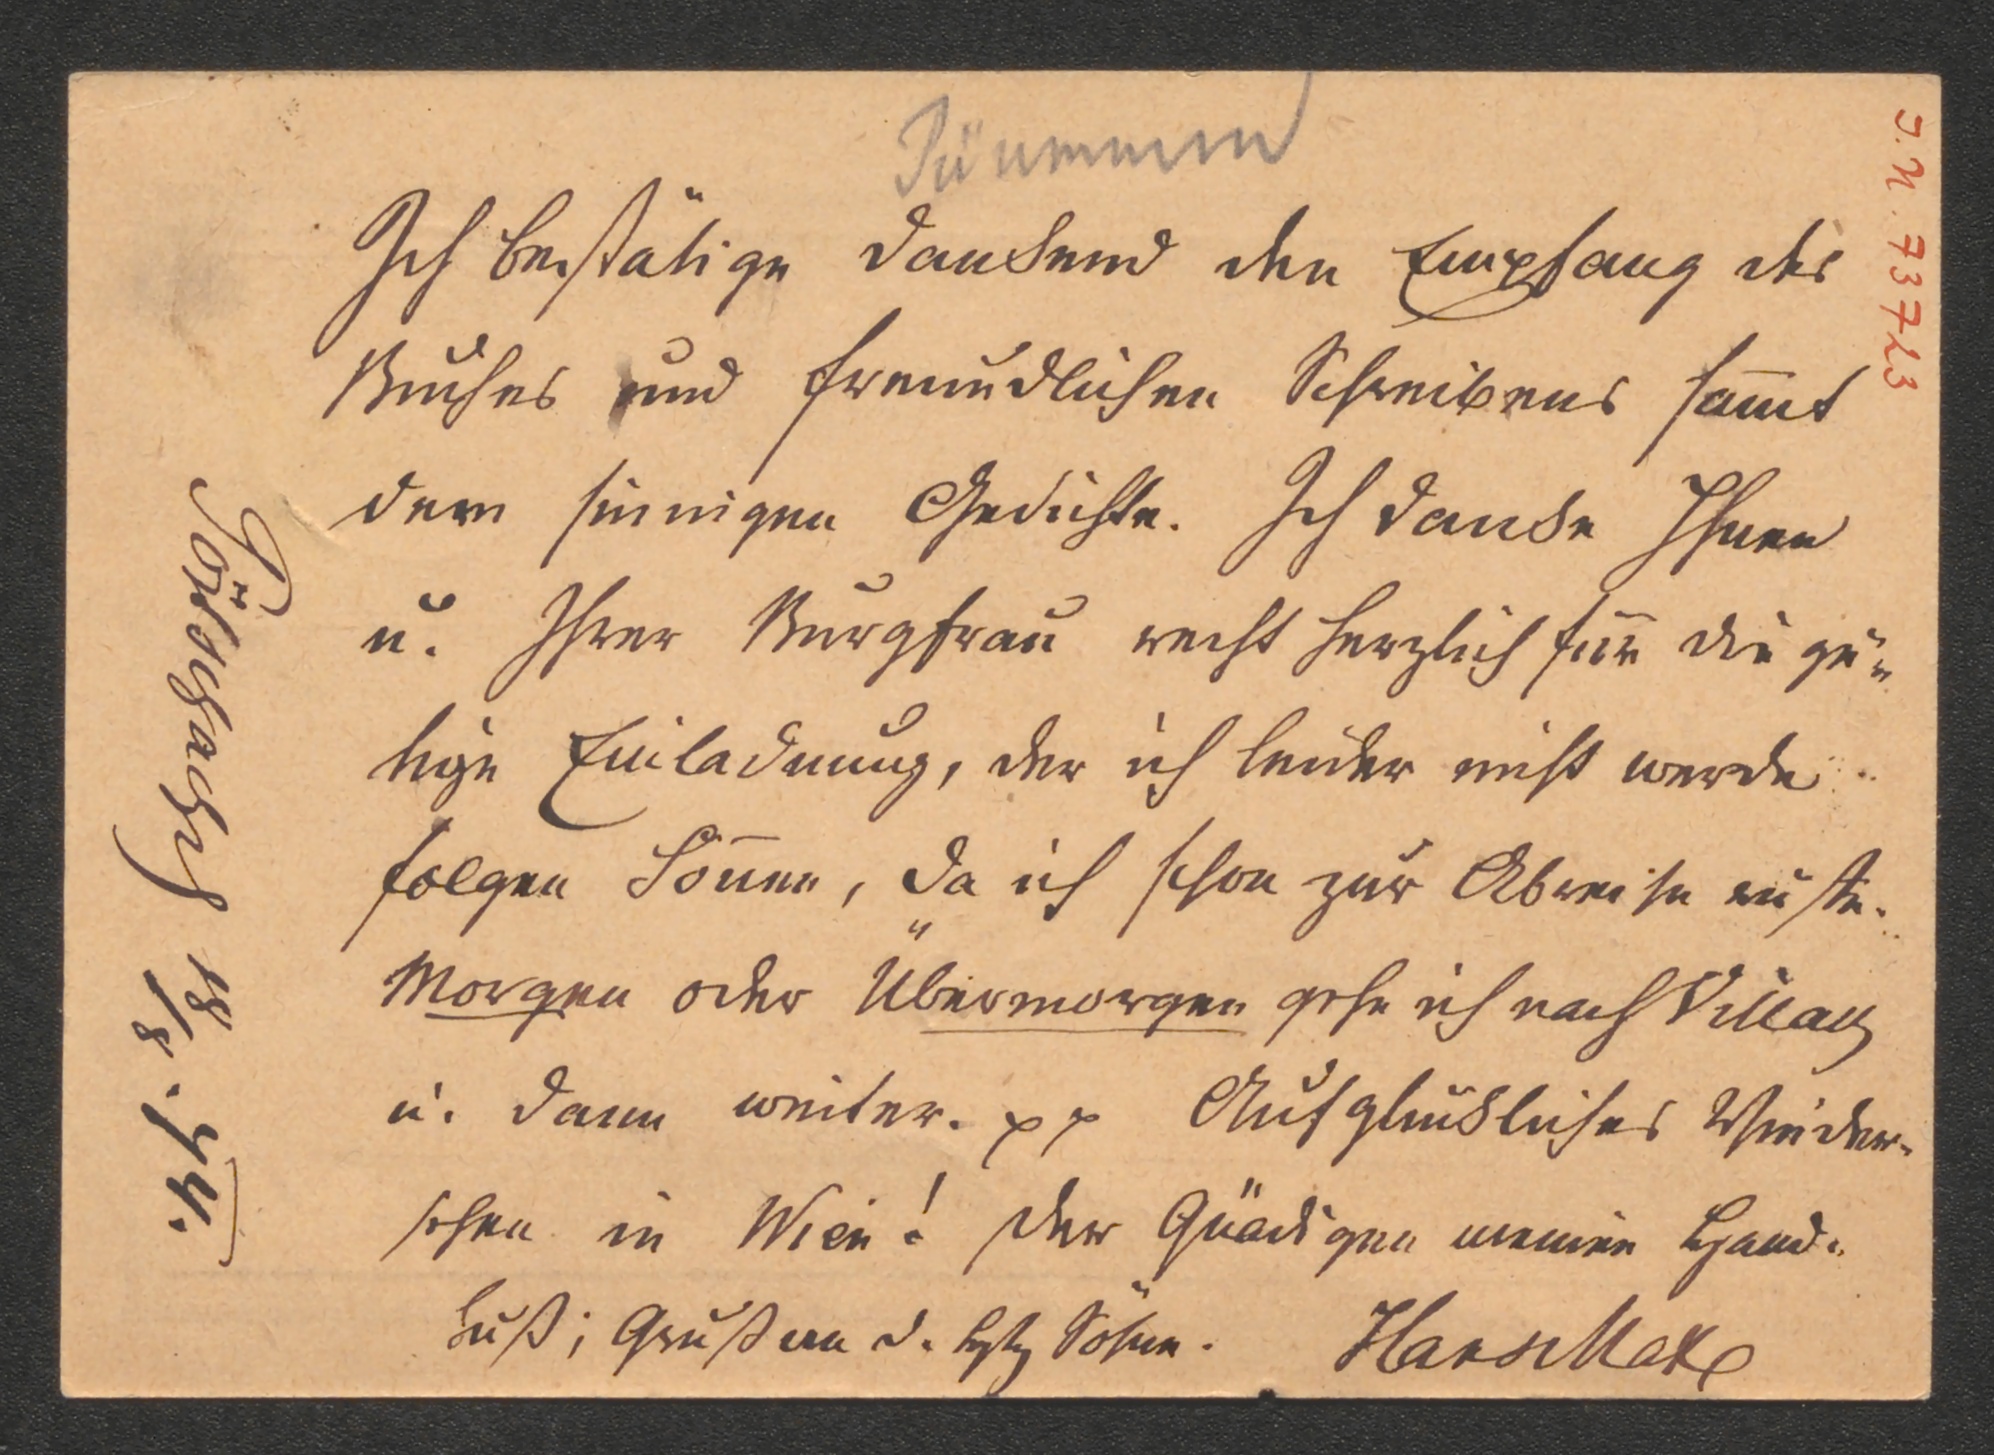 J.N. 73723
Ich bestätige dankend den Empfang des
Buches und freundlichen Schreibens sam̅t
dem sinnigen Gedichte. Ich danke Ihnen
u. Ihrer Burgfrau recht herzlich für die gü-
tige Einladung, der ich leider nicht werde
folgen kön̅en, da ich schon zur Abreise rüste.
Morgen oder Übermorgen gehe ich nach Villach
u. dann weiter. pp Auf glückliches Wieder-
sehen in Wien! Der Gnädigen meinen Hand-
kuß; Gruß an d. Söhne. Hans
Pörtschach 18/8. 94.